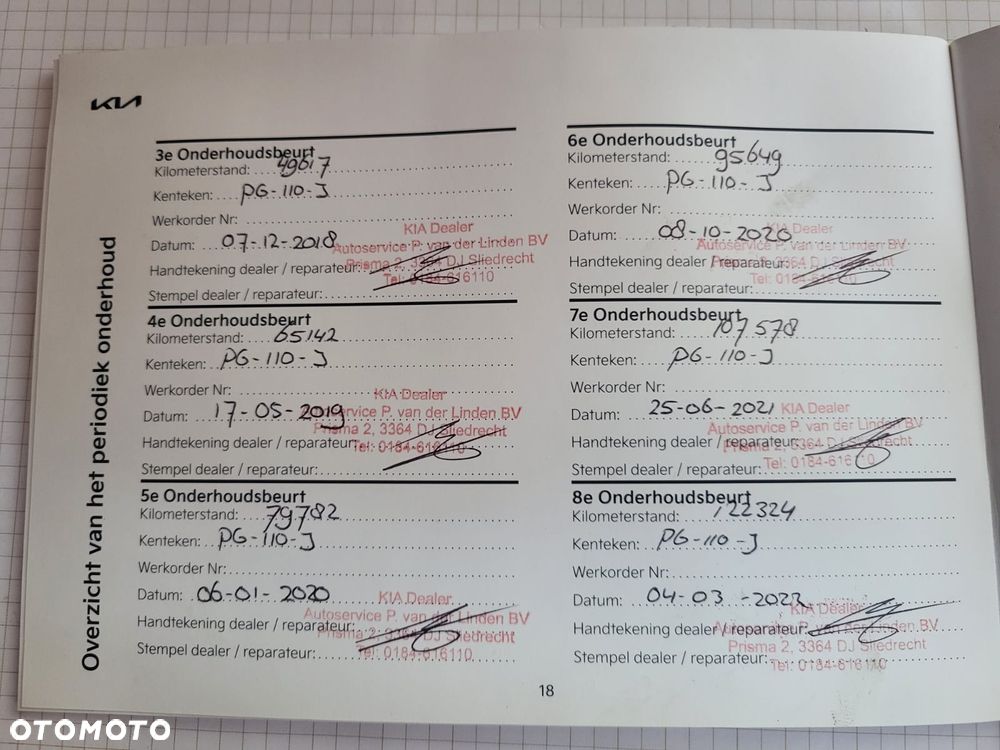 KIA
Overzicht van het periodiek onderhoud
3e Onderhoudsbeurt
Kilometerstand: 49617
Kenteken: PG-110-J
Werkorder Nr:
Datum: 07-12-2018
Handtekening dealer / reparateur:
Stempel dealer / reparateur:
KIA Dealer
Autoservice P. van der Linden BV
Prisma 2, 3364 DJ Sliedrecht
Tel: 0184-616110
4e Onderhoudsbeurt
Kilometerstand: 65142
Kenteken: PG-110-J
Werkorder Nr:
Datum: 17-05-2019
Handtekening dealer / reparateur:
Stempel dealer / reparateur:
KIA Dealer
Autoservice P. van der Linden BV
Prisma 2, 3364 DJ Sliedrecht
Tel: 0184-616110
5e Onderhoudsbeurt
Kilometerstand: 79782
Kenteken: PG-110-J
Werkorder Nr:
Datum: 06-01-2020
Handtekening dealer / reparateur:
Stempel dealer / reparateur:
KIA Dealer
Autoservice P. van der Linden BV
Prisma 2, 3364 DJ Sliedrecht
Tel: 0184-616110
6e Onderhoudsbeurt
Kilometerstand: 95649
Kenteken: PG-110-J
Werkorder Nr:
Datum: 08-10-2020
Handtekening dealer / reparateur:
Stempel dealer / reparateur:
KIA Dealer
Autoservice P. van der Linden BV
Prisma 2, 3364 DJ Sliedrecht
Tel: 0184-616110
7e Onderhoudsbeurt
Kilometerstand: 107578
Kenteken: PG-110-J
Werkorder Nr:
Datum: 25-06-2021
Handtekening dealer / reparateur:
Stempel dealer / reparateur:
KIA Dealer
Autoservice P. van der Linden BV
Prisma 2, 3364 DJ Sliedrecht
Tel: 0184-616110
8e Onderhoudsbeurt
Kilometerstand: 122324
Kenteken: PG-110-J
Werkorder Nr:
Datum: 04-03-2022
Handtekening dealer / reparateur:
Stempel dealer / reparateur:
KIA Dealer
Autoservice P. van der Linden BV
Prisma 2, 3364 DJ Sliedrecht
Tel: 0184-616110
18
OTOMOTO